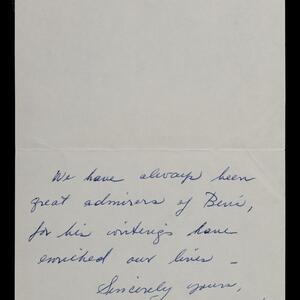 We have always been
great admirers of Ben's,
for his writings have
enriched our lives -
Sincerely yours,